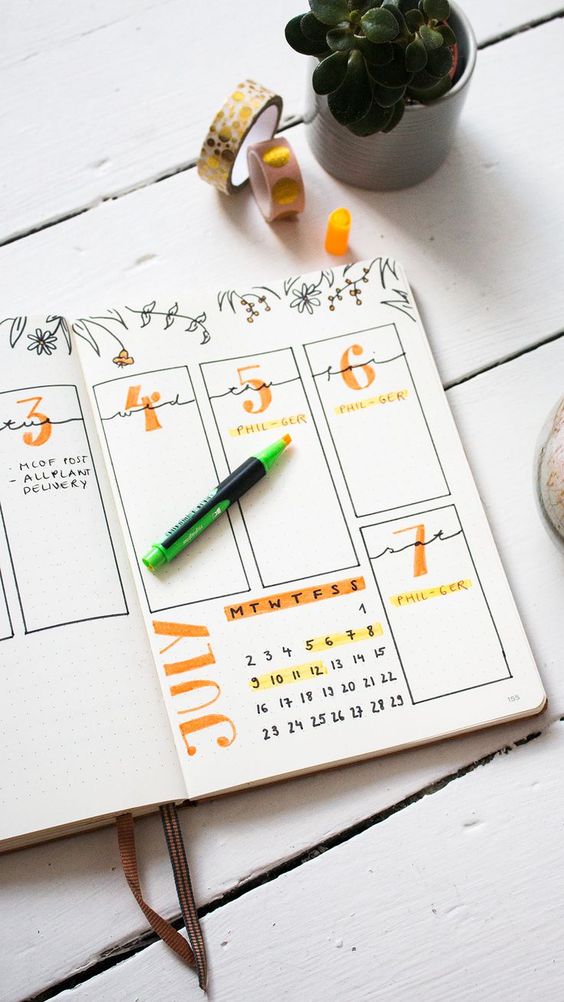 3
tue
- MCOF POST
- ALLPLANT
DELIVERY
4
wed
5
thu
PHIL-GER
6
fri
PHIL-GER
7
sat
PHIL-GER
JULY
M T W T F S S
1
2 3 4 5 6 7 8
9 10 11 12 13 14 15
16 17 18 19 20 21 22
23 24 25 26 27 28 29
155